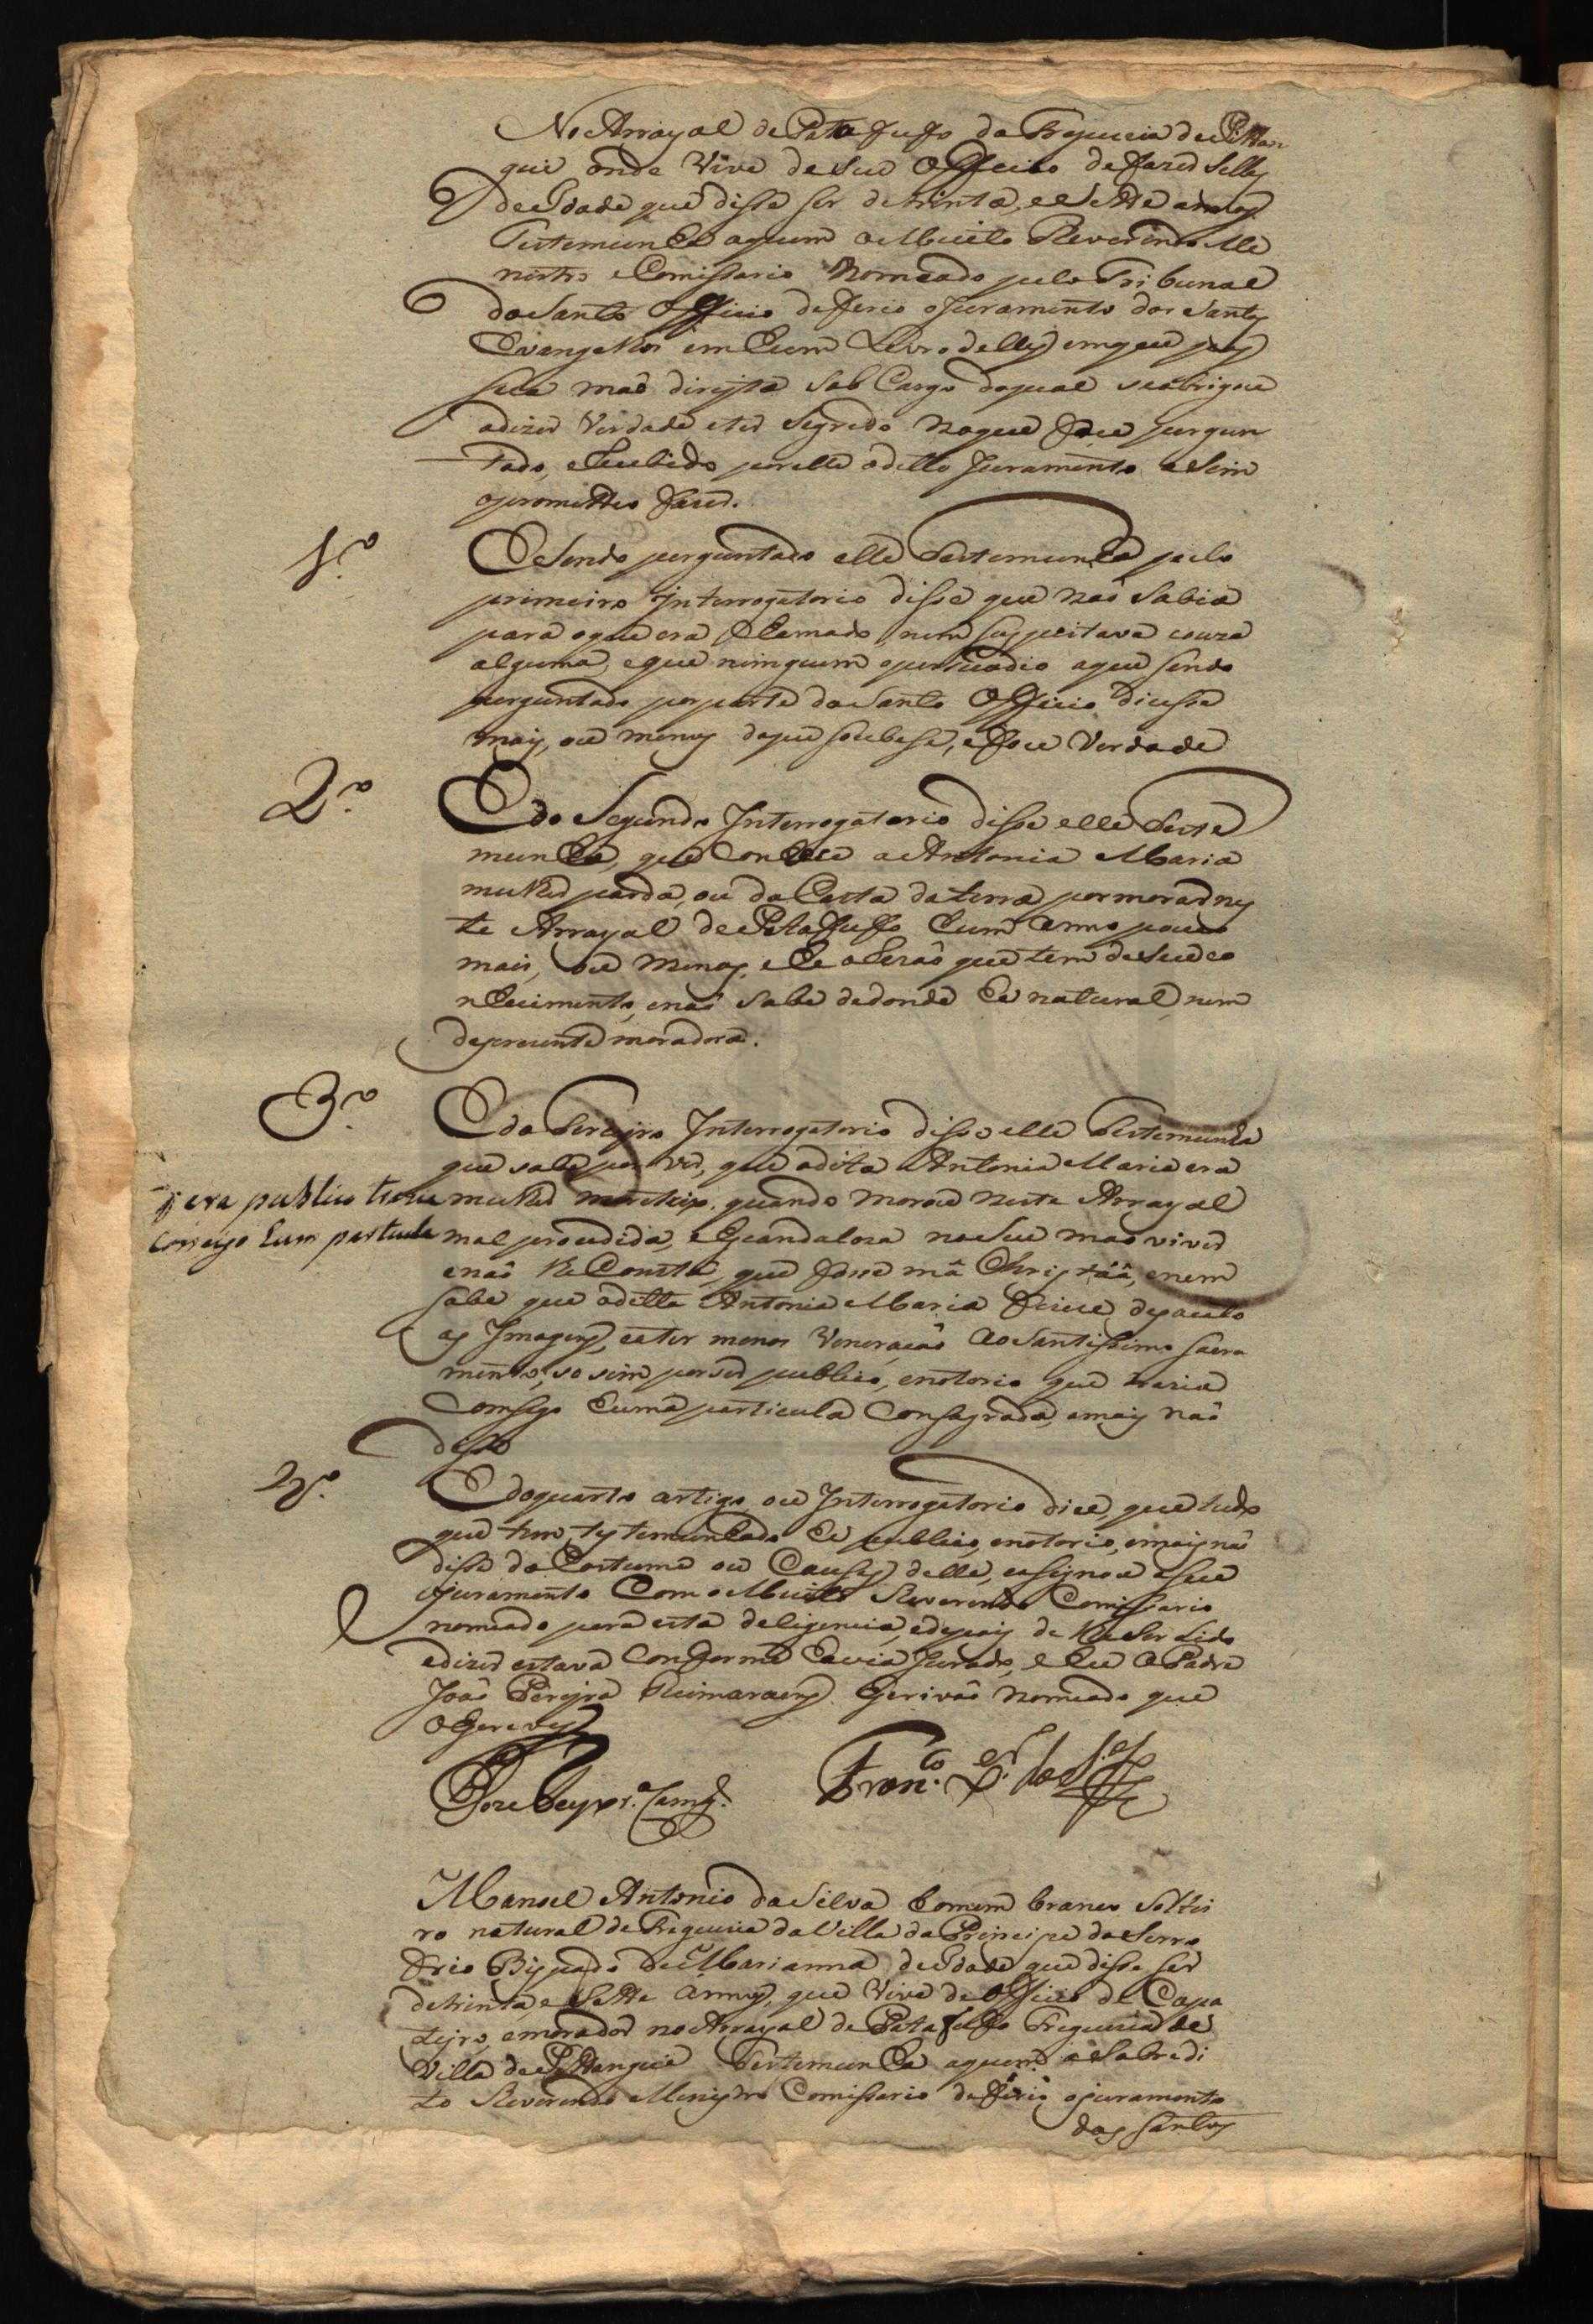 No Arrayal de Patafufo da Freguezia de Pittan
gui onde vive de seu officio de fazer sellas
de Idade que disse ser de trinta, e sette annos
Testemunha aquem o Muito Reverendo Me
nistro e Comissario Nomeado pelo Tribunal
do Santo Officio deferio o juramento dos Santos
Evangelhos em hum Livro delles em que pos
sua maõ direyta sob Cargo do qual se obrigou
adizer verdade eter segredo no que fosse pergun
tado, e recebido por elle o ditto Juramento asim
o prometteo fazer.
1.º
E sendo perguntado elle Testemunha pelo
primeiro Interrogatorio disse que naõ sabia
para o que era chamado, nem suspeitava couza
alguma, e que ninguem o persuadio aque sendo
perguntado por parte do Santo Officio dicesse
mais, ou menos do que soubese, e fose verdade
2.º
E do Segundo Interrogatorio disse elle Teste
munha, que conhece a Antonia Maria
mulher parda, ou da Casta da terra por morar nes
te Arrayal de Patafuffo hum anno pouco
mais, ou menos, e he a rezaõ que tem de seu co
nhecimento, e naõ sabe dedonde he natural, nem
deprezente moradora.
3.º
E do Terceyro Interrogatorio disse elle Testemunha
que sabe por ver, que a dita Antonia Maria era
q era publico trazia
consigo huma particula
mulher quando morou neste Arrayal
mal procedida, e escandaloza no seu mao viver
e naõ lhe Consta, que fosse má Christáã, enem
sabe que a ditta Antonia Maria fizece desacato
as Imagens, eater menos Veneraçaõ ao Santissimo Sacra
mento, so sim por ser publico, enotorio que trazia
Comsigo huma particula Consagrada, emais naõ
disse
4.º
E do quarto artigo, ou Interrogatorio dice, que tudo
que tem testemunhado he publico, enotorio, emais naõ
disse do Costume ou Causas delle, easignou eseu
juramento Com o Muito Reverendo Comissario
nomeado para esta deligencia, edepois de lhe ser Lido
edizer estava Conforme havia Jurado, e Eu o Padre
Joaõ Pereyra Guimaraens Escrivaõ Nomeado que
o Escrevy
Fran.co
Manoel Antonio da Silva homem branco soltei
ro natural de Freguezia da Villa do Principe do Serro
Frio Bispado de Marianna, de Idade que disse ser
de trinta, e Sette annos, que Vive de officio de Çapa
teyro, emorador no Arrayal de Patafuffo Freguezia de
Villa de Pittangui Testemunha aquem o sobredi
to Reverendo Menistro Comissario deferio o juramento
dos Santos